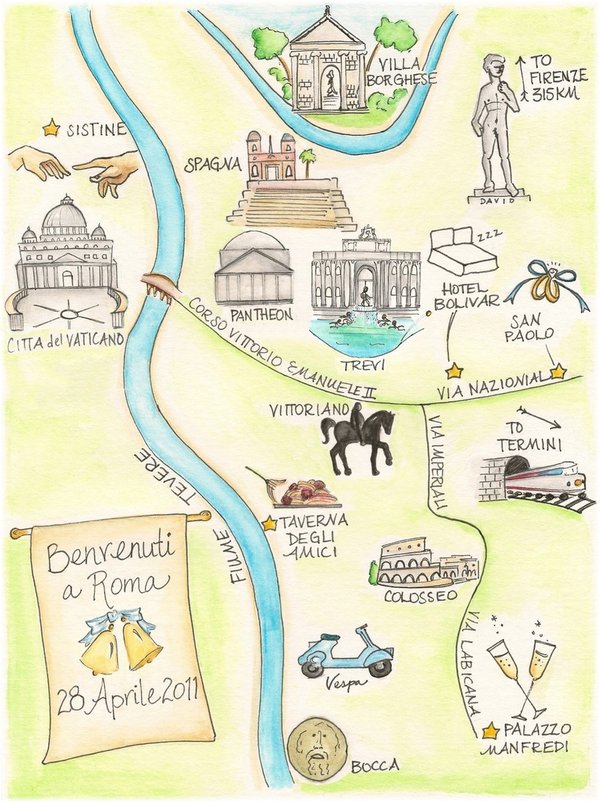 VILLA
BORGHESE
TO
FIRENZE
315KM
SISTINE
SPAGNA
DAVID
zzz
HOTEL
BOLIVAR
PANTHEON
TREVI
SAN
PAOLO
CITTA del VATICANO
CORSO VITTORIO EMANUELE II
VIA NAZIONIAL
VITTORIANO
VIA IMPERIALI
TO
TERMINI
FIUME TEVERE
TAVERNA
DEGLI
AMICI
COLOSSEO
Benvenuti
a Roma
28 Aprile 2011
VIA LABICANA
Vespa
PALAZZO
MANFREDI
BOCCA